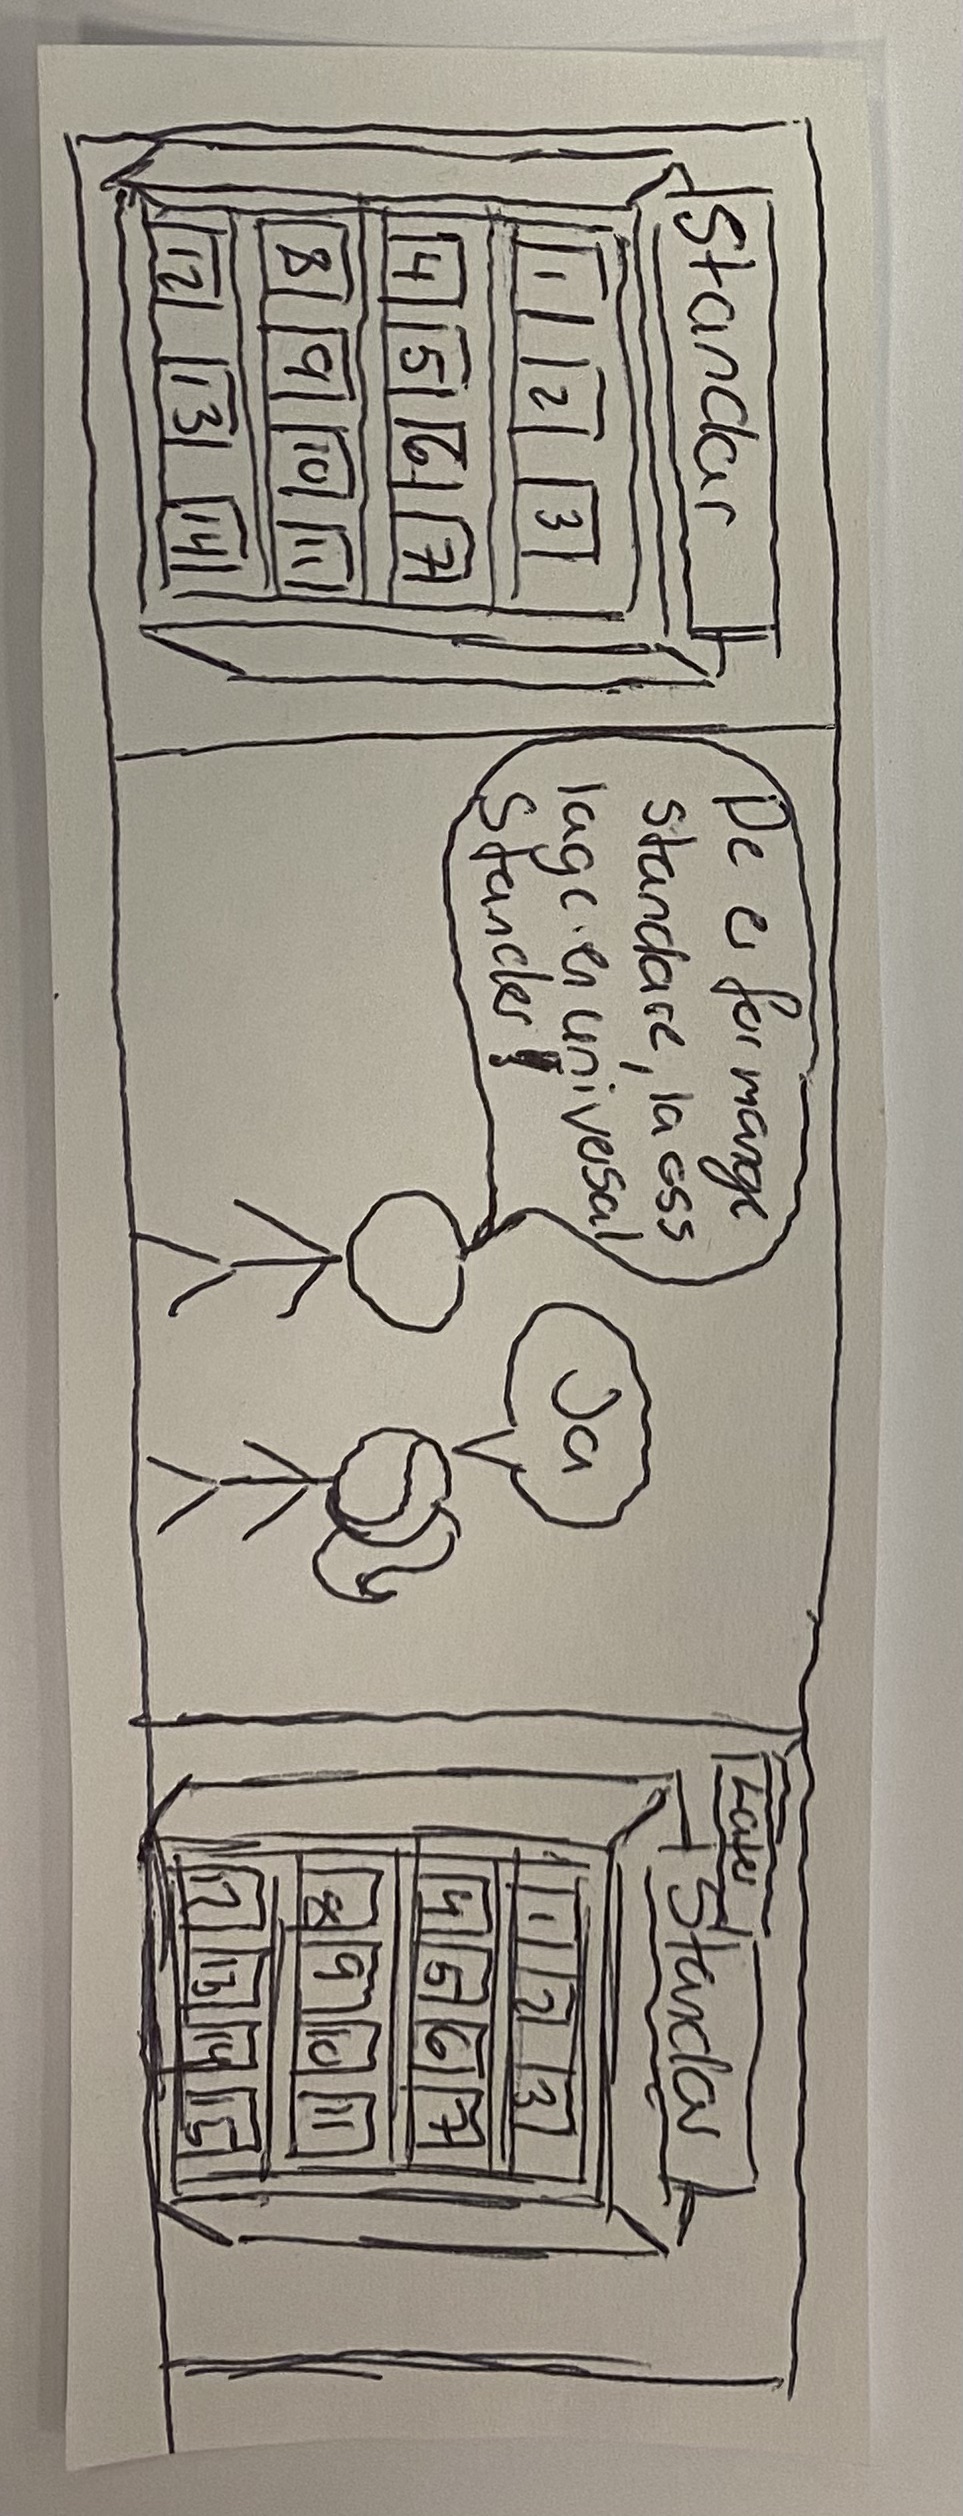 Standar
1 2 3
4 5 6 7
8 9 10 11
12 13 14
De er for mange
standare, la oss
lage en universal
Stander!
Ja
Later
Standar
1 2 3
4 5 6 7
8 9 10 11
13 14 15